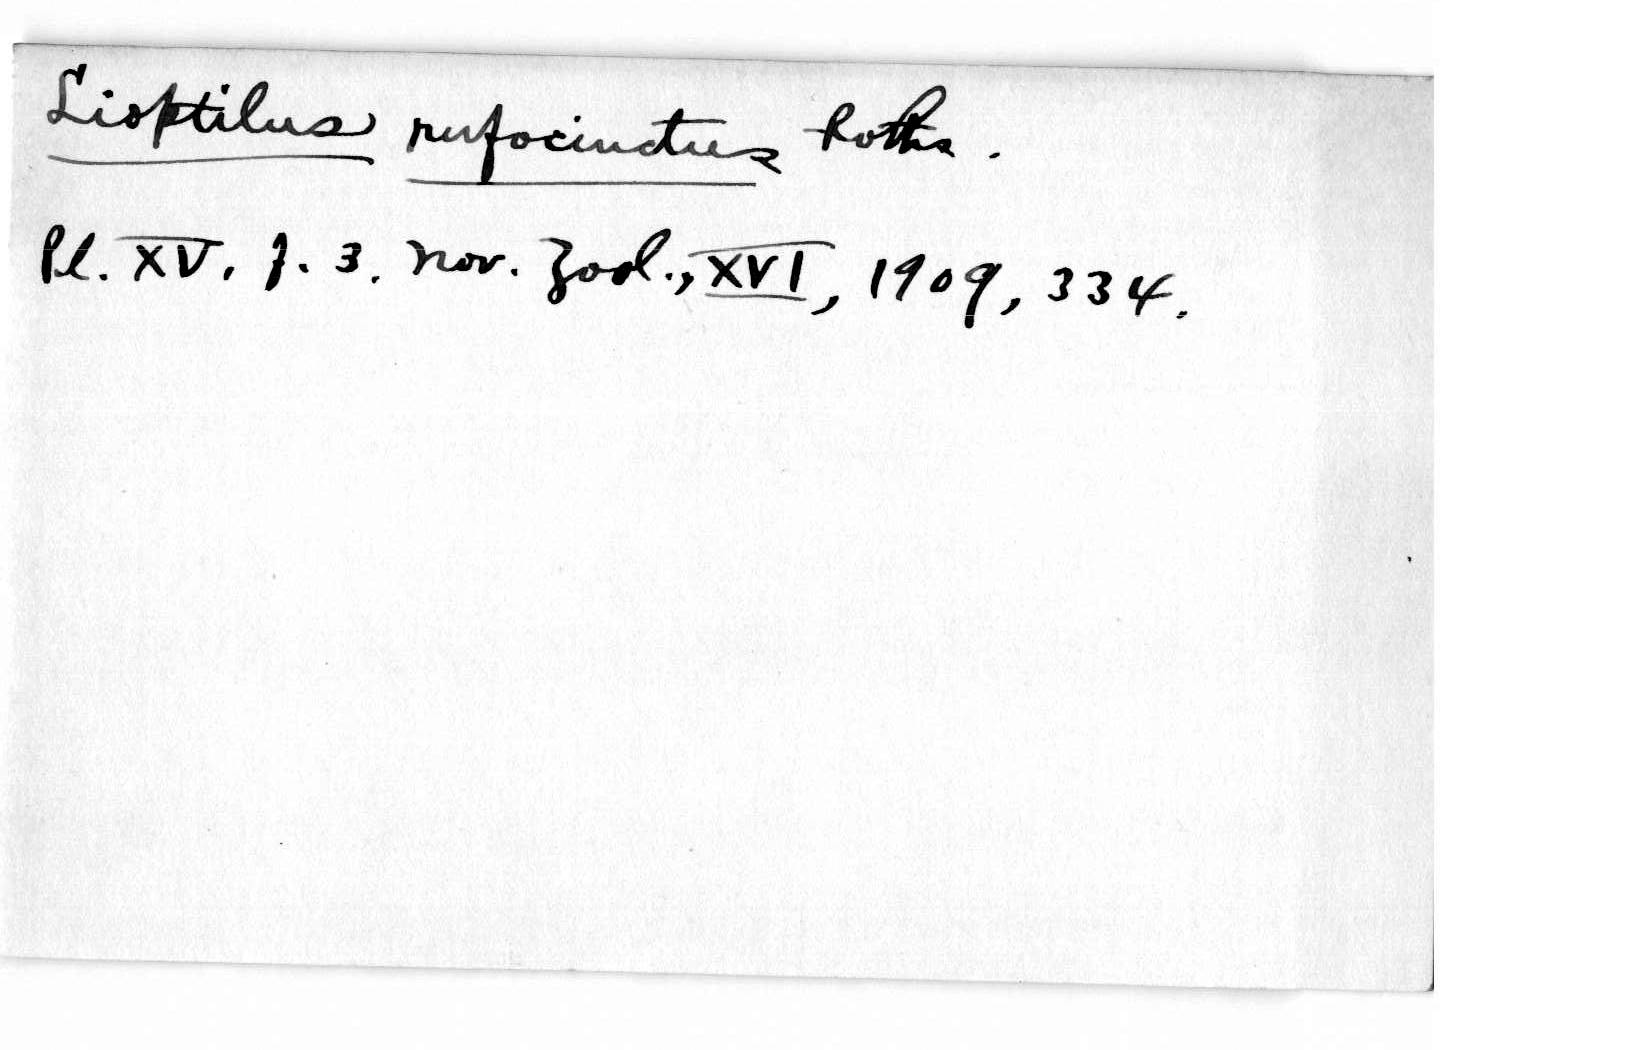 Lioptilus rufocinctus Roths.
Pl. XV. f. 3. Nov. Zool., XVI, 1909, 334.